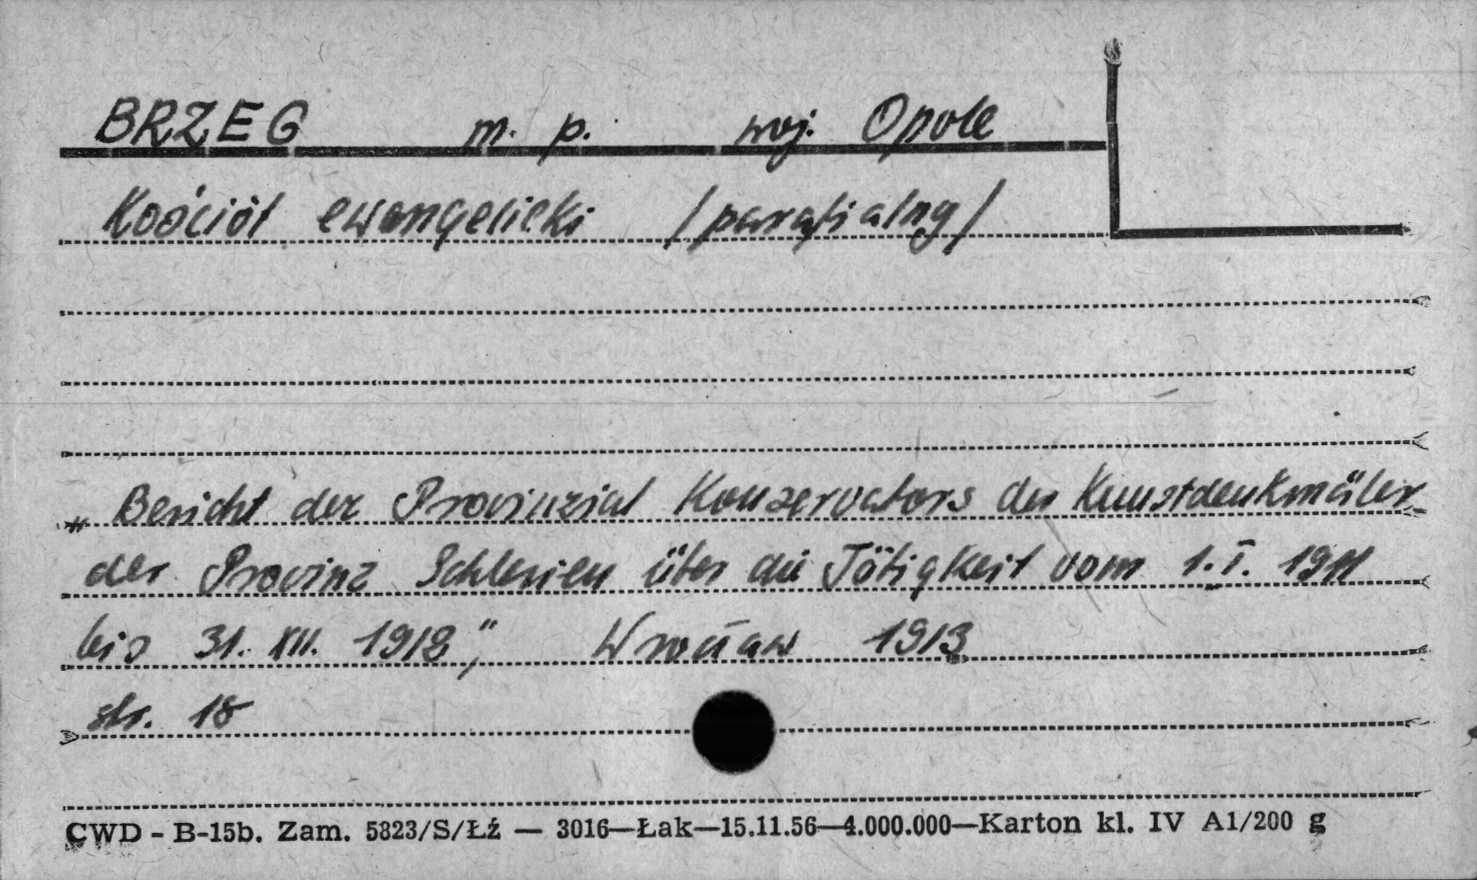 BRZEG m. p. woj. Opole
Kościół ewangelicki /parafialny/
„Bericht der Provinzial Konservators der Kunstdenkmäler
der Provinz Schlesien über die Tätigkeit vom 1.I. 1911
bis 31. XII. 1912", Wrocław 1913
str. 18
CWD - B-15b. Zam. 5823/S/Łź — 3016—Łak—15.11.56—4.000.000—Karton kl. IV A1/200 g